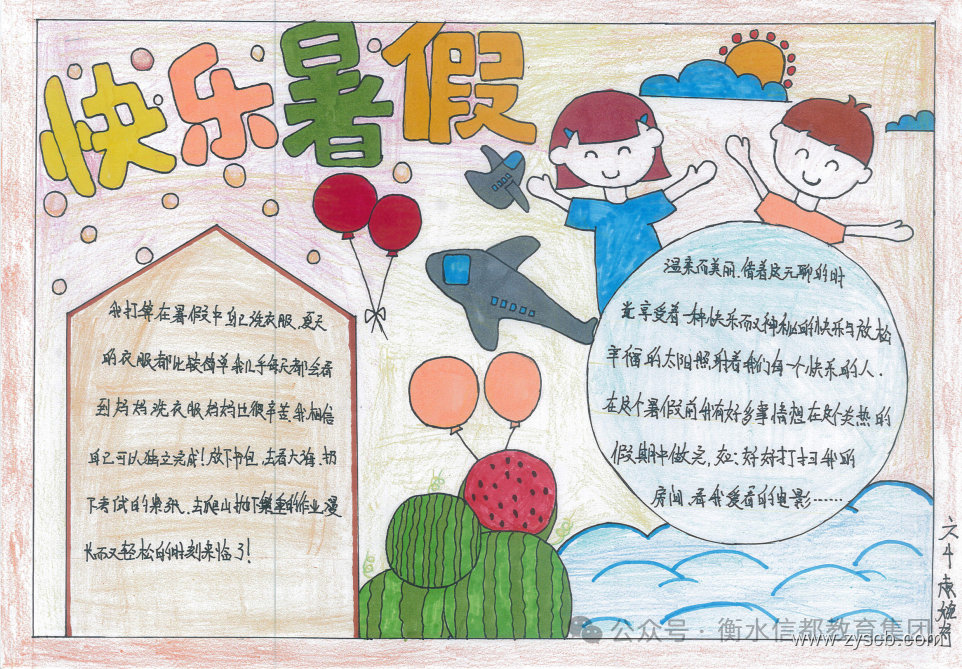 快乐暑假
我打算在暑假中自己洗衣服,夏天
的衣服都比较简单我几乎每天都会看
到妈妈洗衣服妈妈也很辛苦,我相信
自己可以独立完成!放下书包,去看大海,扔
下考试的集,去爬山抛下繁重的作业,漫
长而又轻松的时刻来临了!
温柔而美丽.借着这无聊的时
光享受着一种快乐而又种的快乐与放松
幸福的太阳照射着我们每一个快乐的人.
在这个暑假前我有好多事情想在这个炎热的
假期中做完,在:好好打扫我的
房间,看我爱看的电影……
六4
公众号·衡水信都教育集团
www.zyscb.com